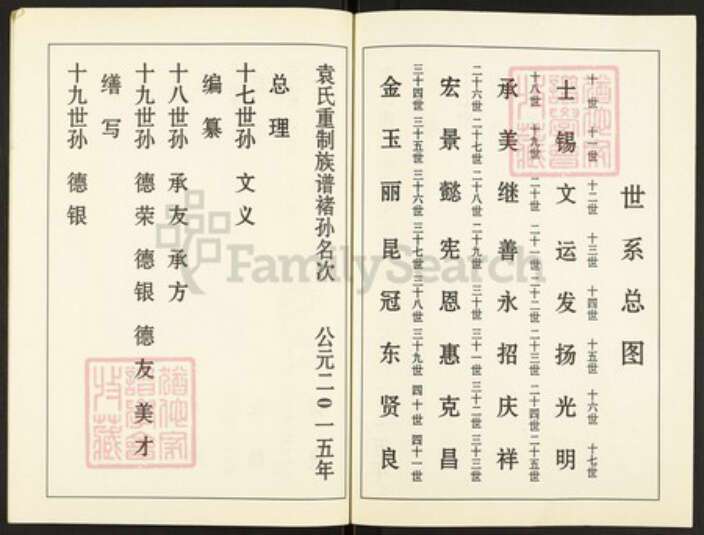 世系总图
十世 十一世 十二世 十三世 十四世 十五世 十六世 十七世
士 锡 文 运 发 扬 光 明
十八世 十九世 二十世 二十一世 二十二世 二十三世 二十四世 二十五世
承 美 继 善 永 招 庆 祥
二十六世 二十七世 二十八世 二十九世 三十世 三十一世 三十二世 三十三世
宏 景 懿 宪 恩 惠 克 昌
三十四世 三十五世 三十六世 三十七世 三十八世 三十九世 四十世 四十一世
金 玉 丽 昆 冠 东 贤 良
袁氏重制族谱褚孙名次 公元二0一五年
总理
十七世孙 文义
编纂
十八世孙 承友 承方
十九世孙 德荣 德银 德友 美才
缮写
十九世孙 德银
FamilySearch